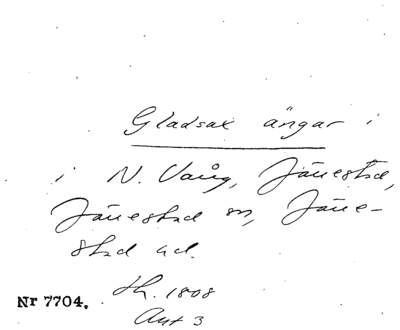 Gladsax ängar i
i N. Vång, Järrestad,
Järrestad sn, Järre-
stad hd.
Nr 7704.
Lh. 1808
Akt 3